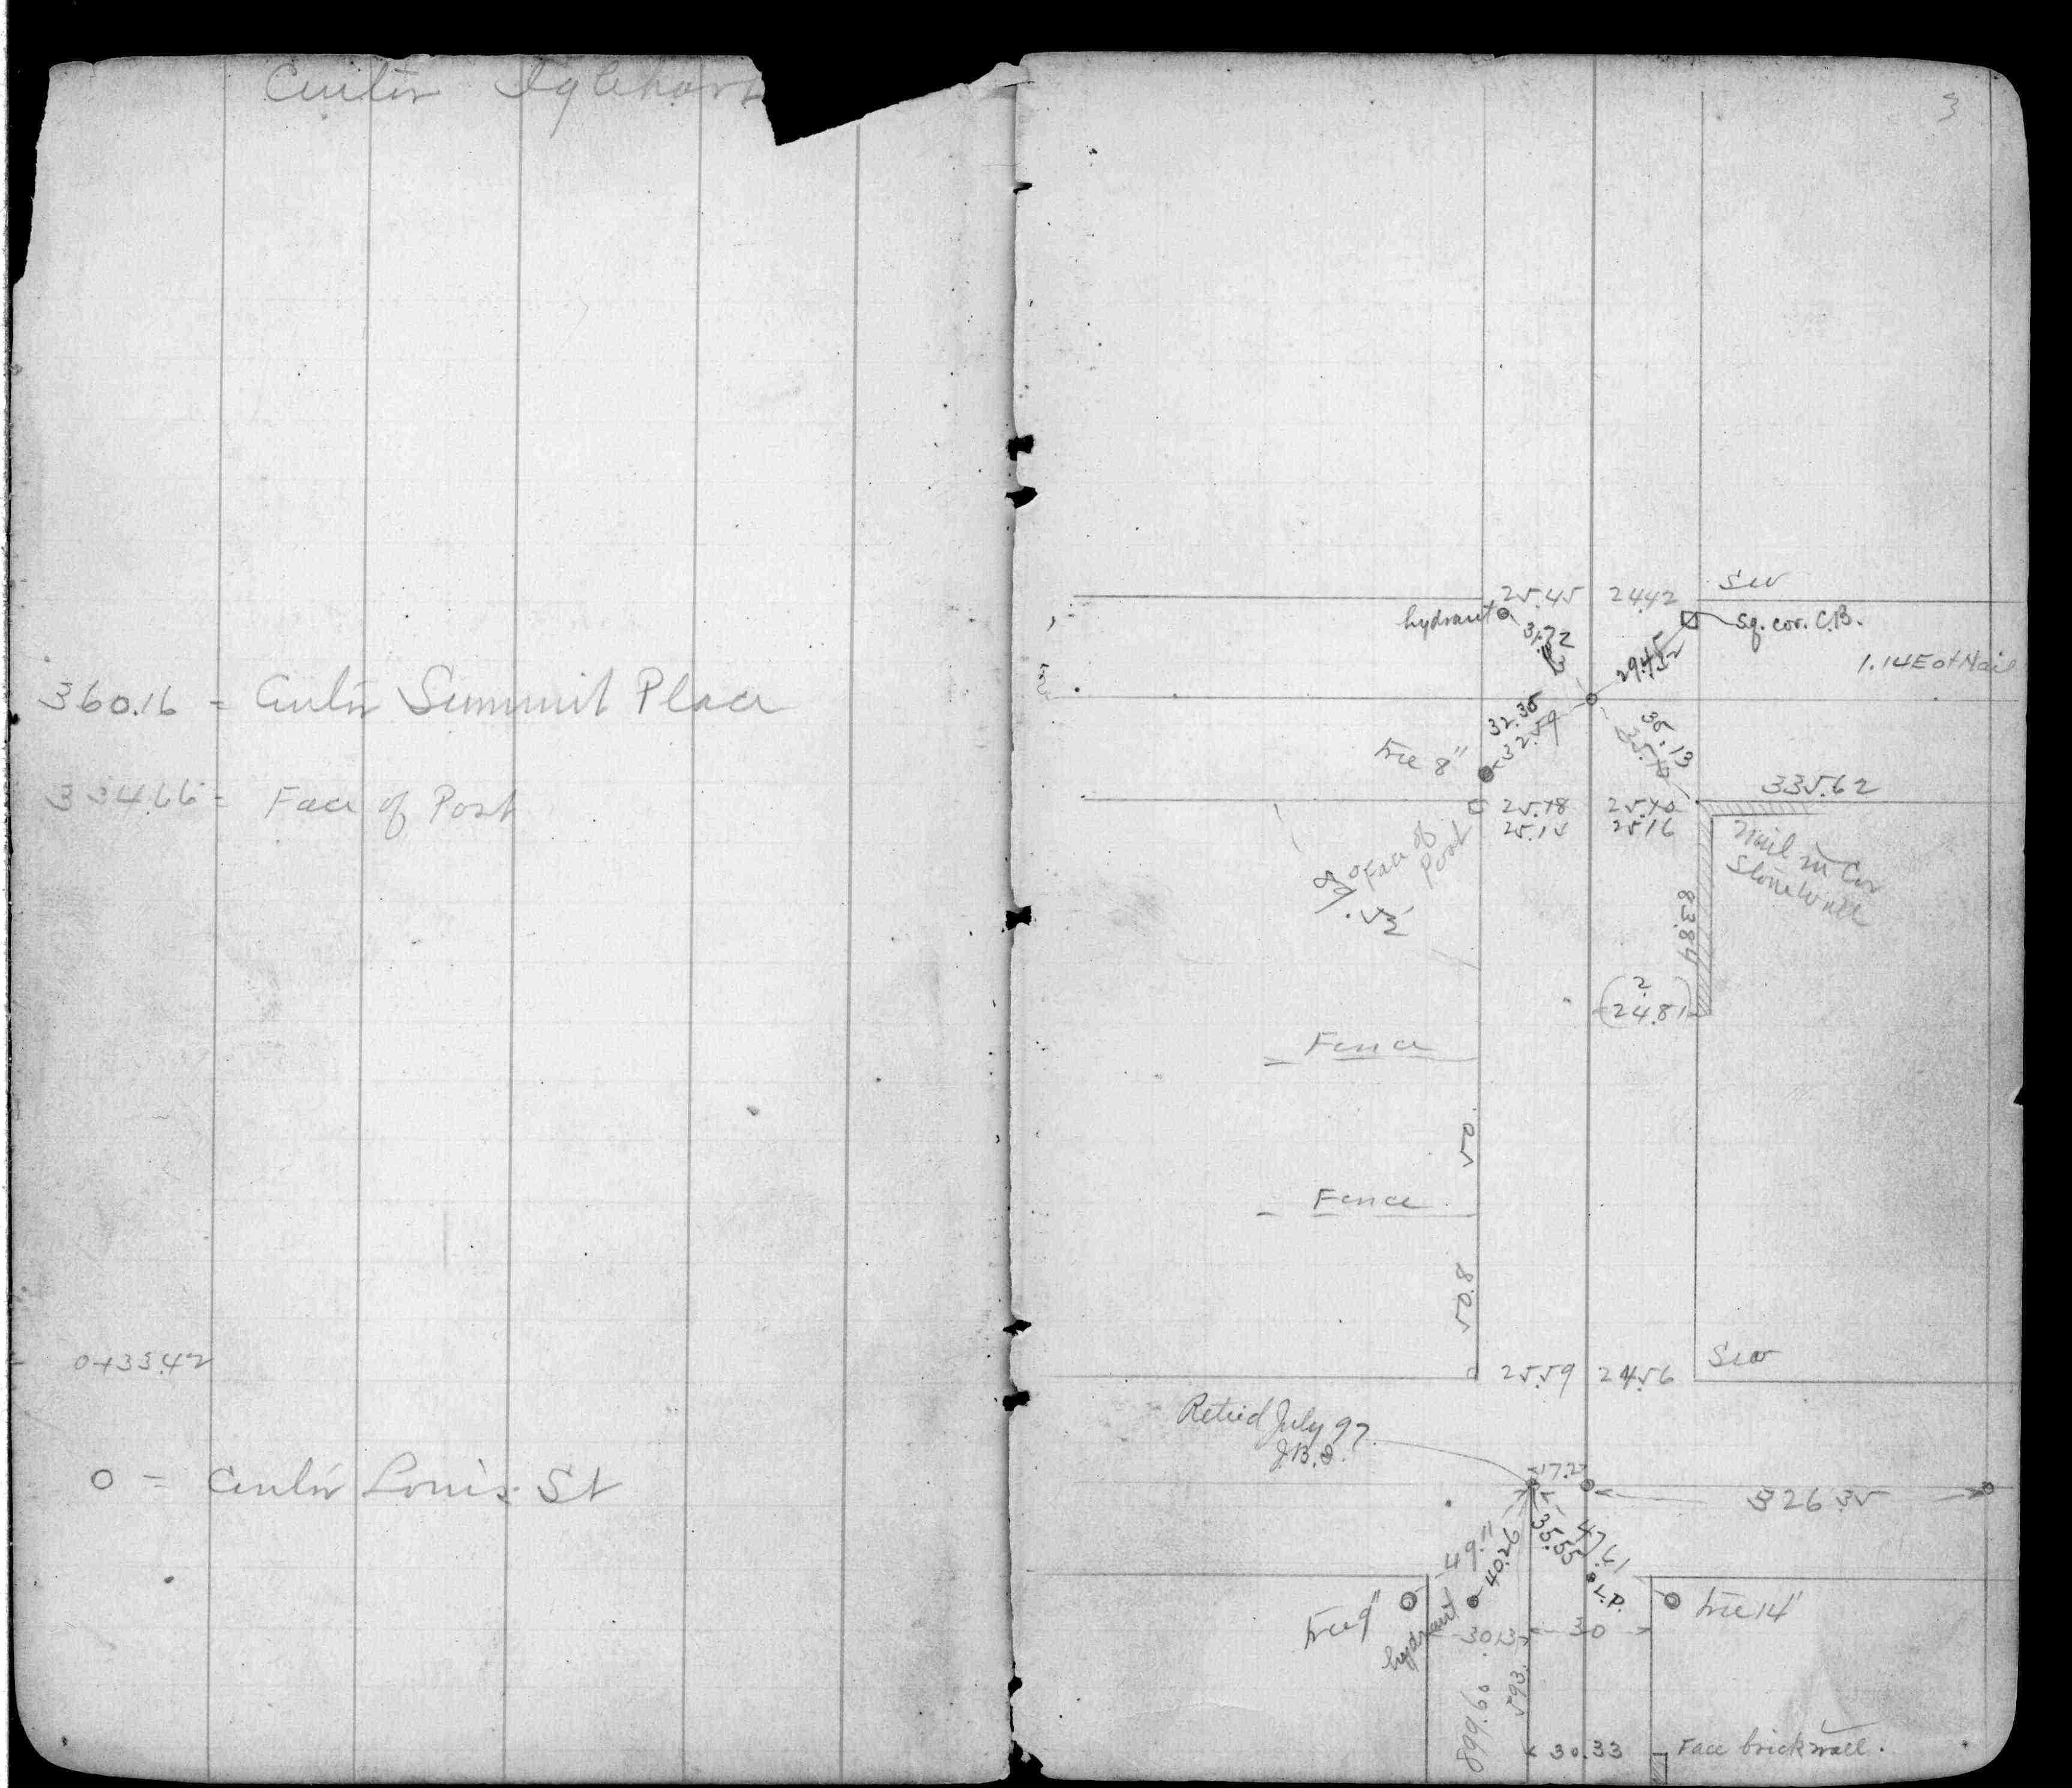 Center Iglehart
360.16 = Center Summit Place
334.66 = Face of Post
0+33.42
0 = Center Louis St
3
25.45 24.42 SW
hydrant
31.72
Sq. cor. C.B.
29.45
1.14 E of Nail
32.35
32.59
35.13
tree 8"
335.62
25.18 25.10
25.15 25.16
Nail in Cor
Stone Wall
Face of
Post
83.84
2.
(24.81)
Fence
50.
Fence
50.8
25.59 24.56 SW
Retied July 97
J.B.
17.2
326.35
49.11
40.26
35.55
47.61
L.P.
tree 9"
hydrant
tree 14"
30.13 30
899.60
593.
30.33 Face brick wall.